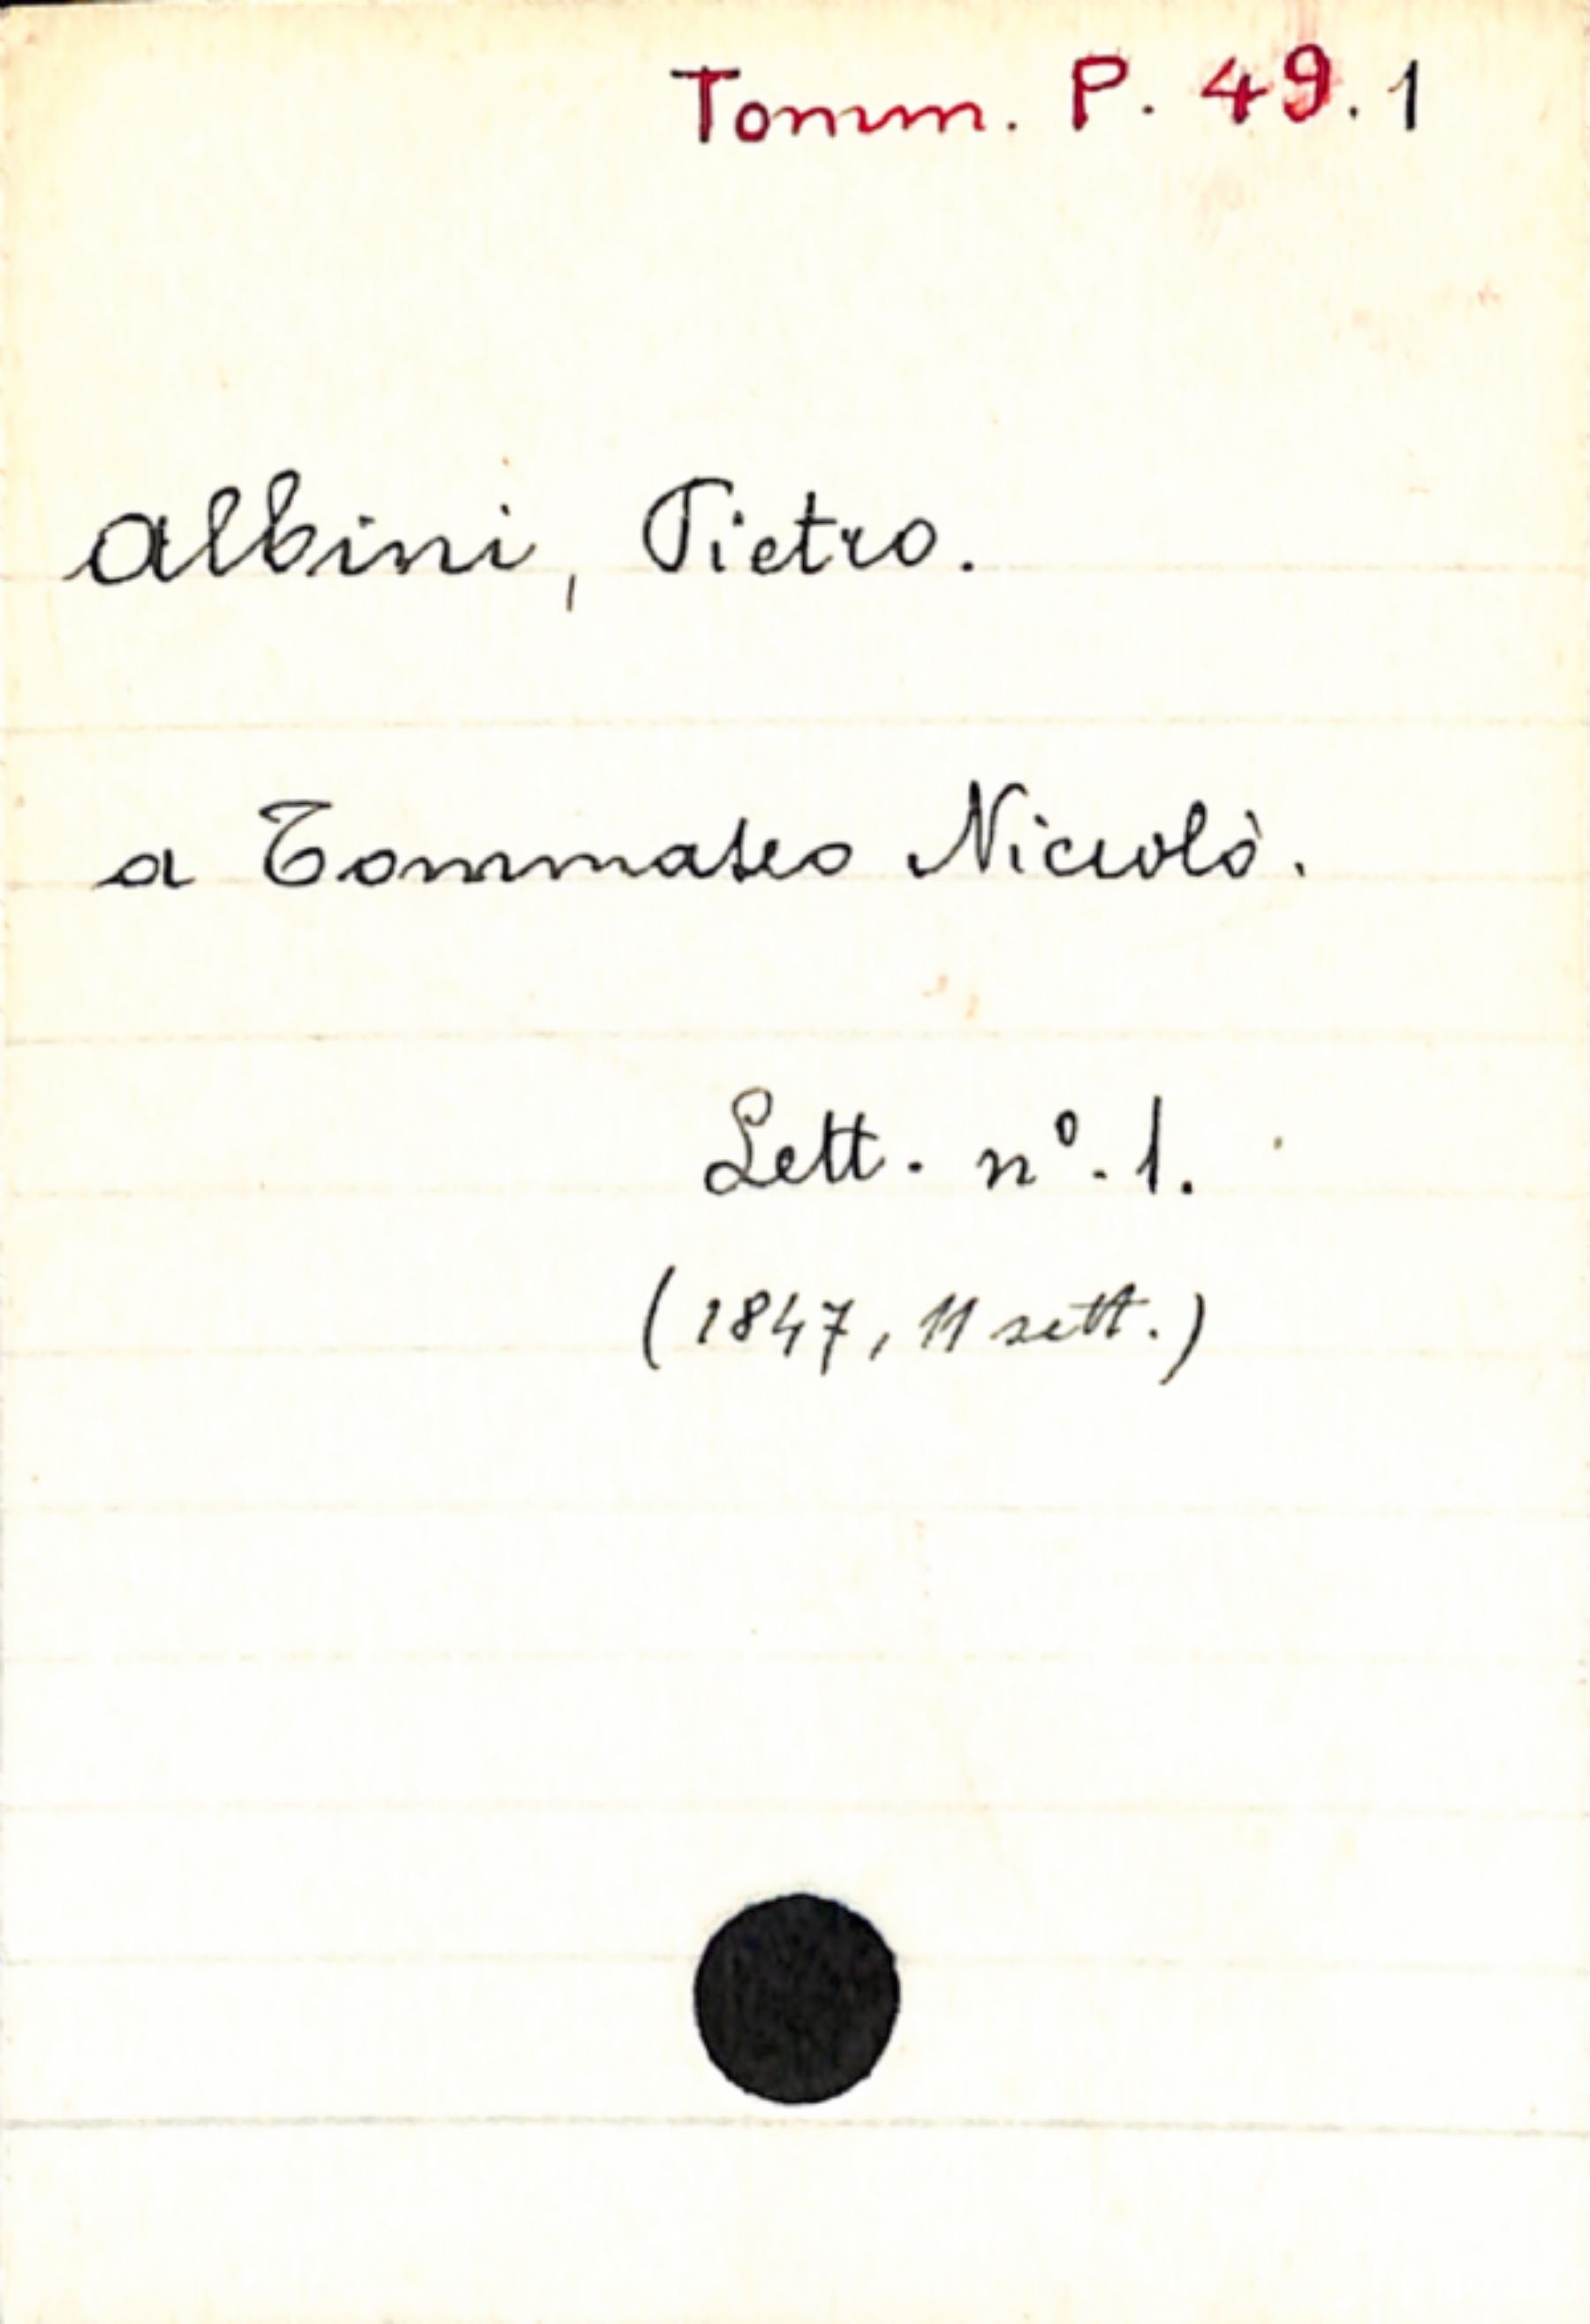 Tomm. P. 49. 1
Albini, Pietro.
a Tommaseo Niccolò.
Lett. nº. 1.
(1847, 11 sett.)